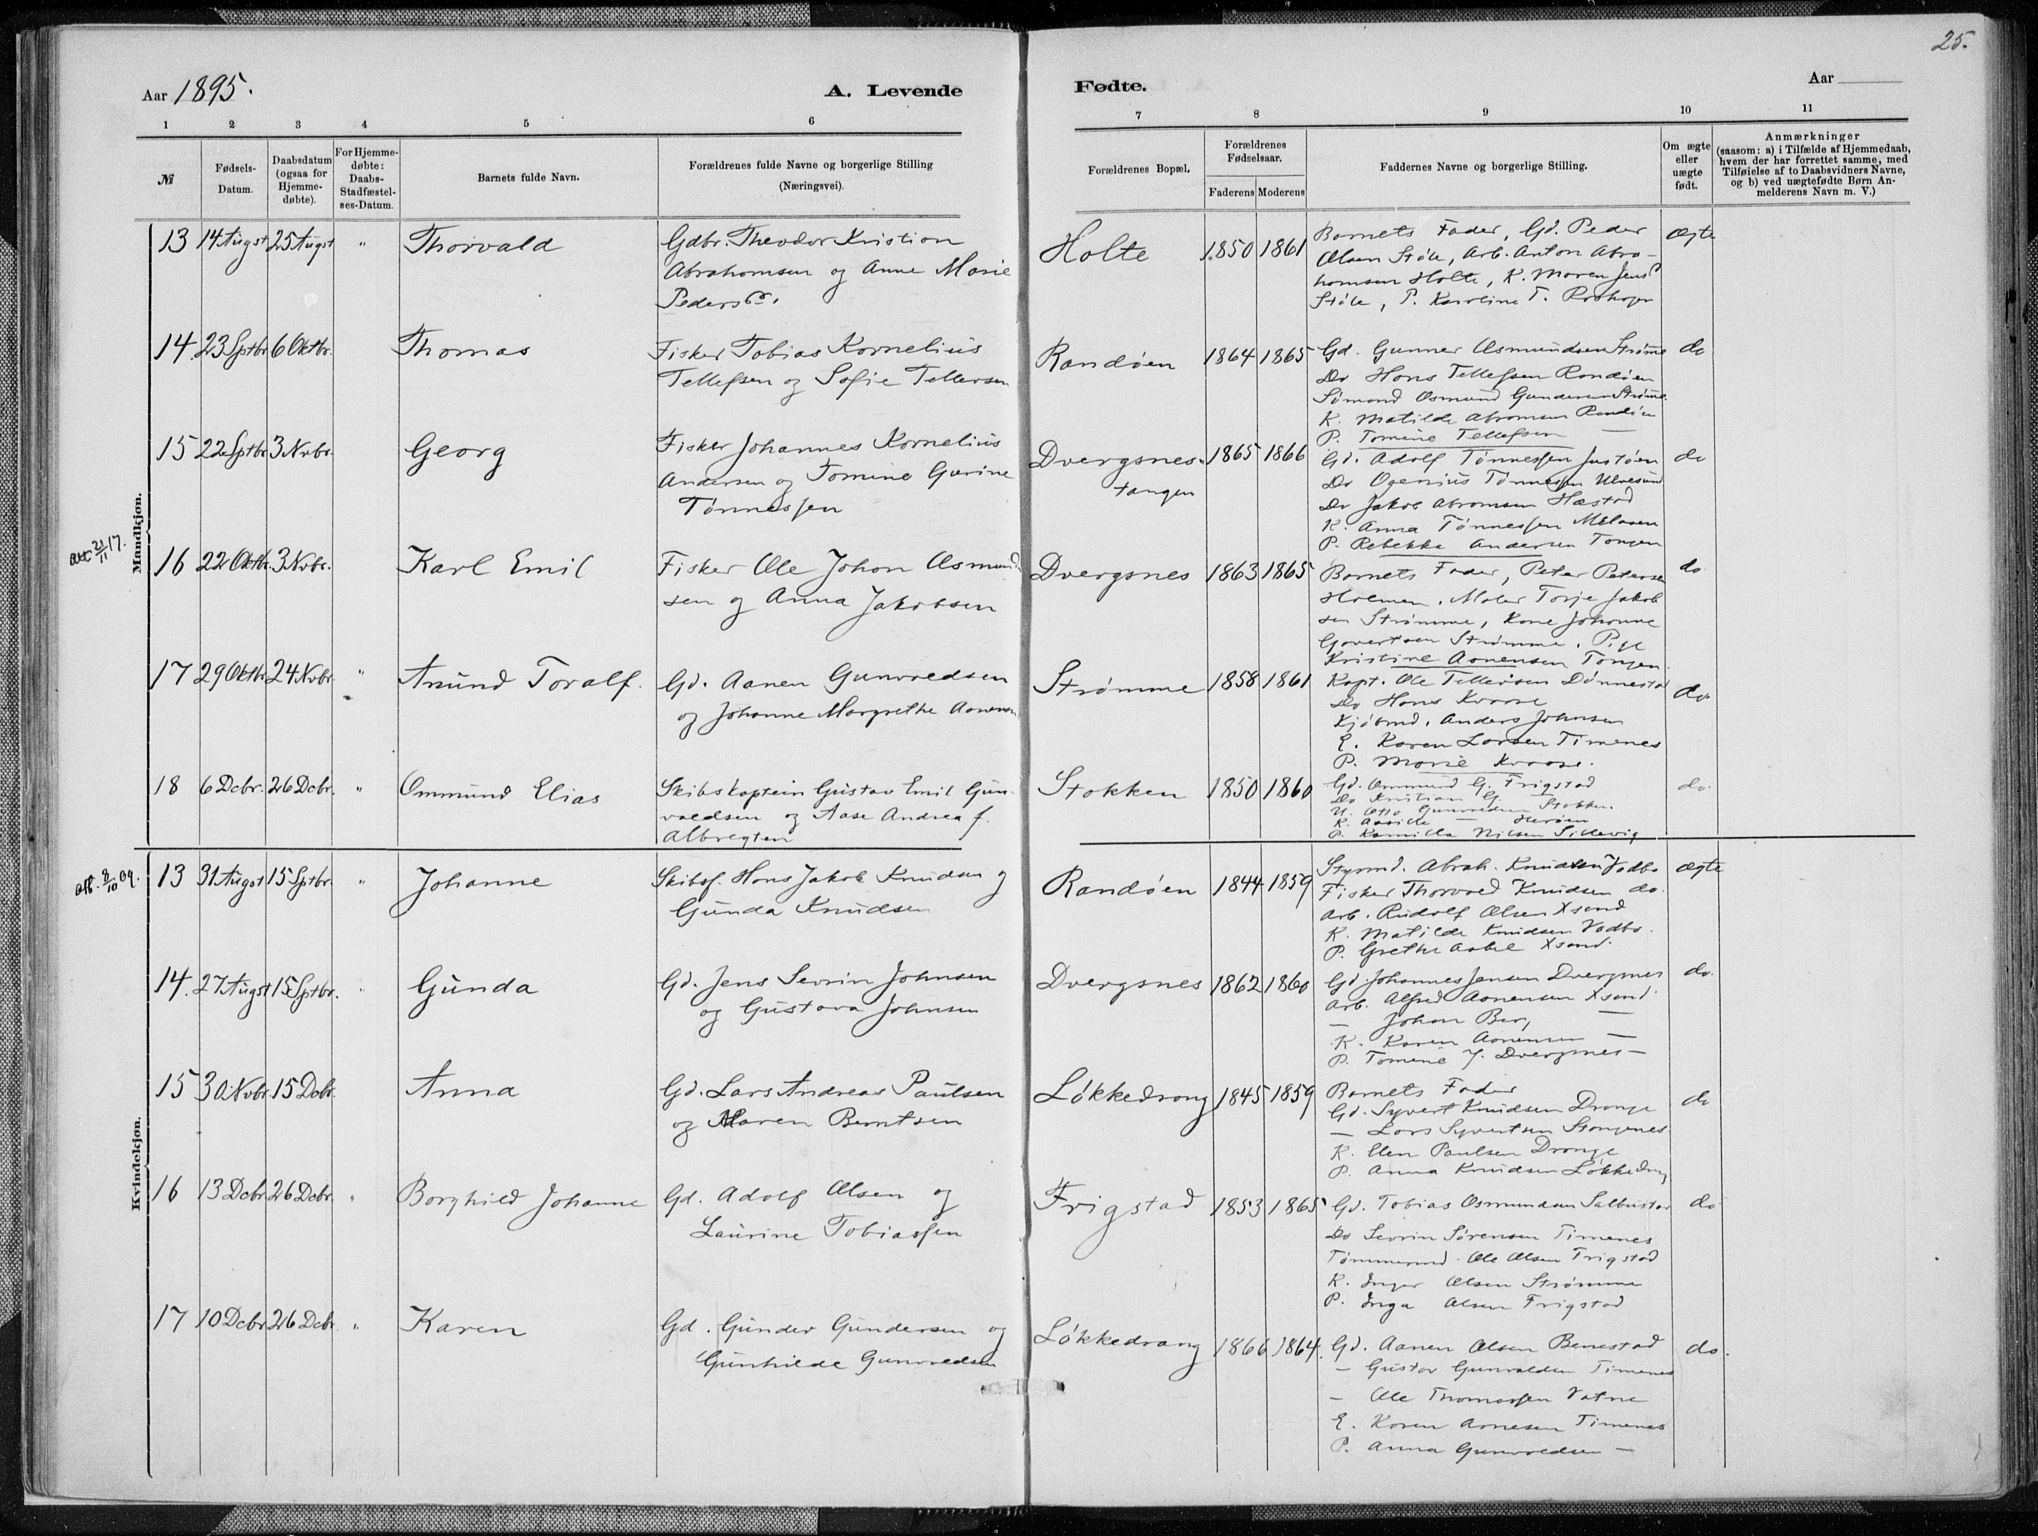 25.
Aar 1895.
A. Levende
Fødte.
Aar
1 2 3 4 5 6 7 8 9 10 11
№
Fødsels-
Datum.
Daabsdatum
(ogsaa for
Hjemme-
døbte).
For Hjemme-
døbte:
Daabs-
Stadfæstel-
ses-Datum.
Barnets fulde Navn.
Forældrenes fulde Navne og borgerlige Stilling
(Næringsvei).
Forældrenes Bopæl.
Forældrenes
Fødselsaar.
Faderens Moderens
Faddernes Navne og borgerlige Stilling.
Om ægte
eller
uægte
født.
Anmærkninger
(saasom: a) i Tilfælde af Hjemmedaab,
hvem der har forrettet samme, med
Tilføielse af to Daabsvidners Navne,
og b) ved uægtefødte Børn An-
melderens Navn m. V.)
Mandkjøn.
13 14 Augst 25 Augst " Thorvald
Gdbr. Theodor Kristian
Abrahamsen og Anne Marie
Peders
Holte 1850 1861
Barnets Fader, Gd. Peder
Olsen Støle, Arb. Anton Abra-
hamsen Holte, K. Maren Jens
Støle, P. Karoline T.
ægte
14. 23 Sptbr. 6 Oktbr. Thomas
Fisker Tobias Kornelius
Tellefsen og Sofie Tellefsen
Randøen 1864 1865
Gd. Gunner Osmundsen Strømme
Do Hans Tellefsen Randøen
Sømand Osmund Gundersen Strømme
K. Matilde Abramsen Randøen
P. Tomine Tellefsen —
do
15 22 Sptbr. 3 Nvbr. Georg
Fisker Johannes Kornelius
Andersen og Tomine Gurine
Tønnessen
Dvergsnes-
tangen
1865 1866
Gd. Adolf Tønnessen Justøen
Do Ogenius Tønnessen Ulvesund
Do Jakob Abramsen Hæstad
K. Anna Tønnessen
P. Rebekka Andersen Tangen
do
Att 21/11 17.
16 22 Oktbr. 3 Nvbr. Karl Emil
Fisker Ole Johan Osmund-
sen og Anna Jakobsen
Dvergsnes 1863 1865
Barnets Fader, Peter Petersen
Holmen, Maler Torje Jakob
sen Strømme, Kone Johanne
Govertsen Strømme, Pige
Kristine Aanensen Tangen
do
17 29 Oktbr. 24 Nvbr. " Anund Toralf.
Gd. Aanen Gunvaldsen
og Johanne Margrethe Aanensen
Strømme 1858 1861
Kapt. Ole Tellefsen Dønnestad
Do Hans Kraase
Kjøbmd. Anders Johnsen
E. Karen Larsen Timenes
P. Marie Kraase.
do.
18 6 Dcbr. 26 Dcbr. " Ommund Elias
Skibskaptein Gustav Emil Gun-
valdsen og Aase Andrea f.
Albregten
Stokken 1850 1860
Gd. Ommund G. Frigstad
Do Kristian G.
U. Otto Gunvaldsen Stokken.
K. Aasille — Herøen
P. Kamilla Nilsen Sillevig
do.
Kvindekjøn.
Aff. 8/10 09.
13 31 Augst 15 Sptbr. " Johanne
Skibsf. Hans Jakob Knudsen og
Gunda Knudsen
Randøen 1844 1859
Styrmd. Abrah. Knudsen Vodbo
Fisker Thorvald Knudsen do.
Arb. Rudolf Olsen Xsand
K. Matilde Knudsen Vodbo.
P. Grethe Aabel Xsand.
ægte
14. 27 Augst 15 Sptbr. " Gunda
Gd. Jens Severin Johnsen
og Gustava Johnsen
Dvergsnes 1862 1860
Gd Johannes Jensen Dvergsnes
Arb. Alfred Aanensen Xsand.
— Johan Ber, —
K. Karen Aanensen —
P. Tomine J. Dvergsnes —
do.
15 30 Nvbr. 15 Dcbr. Anna
Gd. Lars Andreas Paulsen
og Maren Berntsen
Løkkedrang 1845 1859
Barnets Fader
Gd. Syvert Knudsen Drange
— Lars Syvertsen Stangenes.
K. Elen Paulsen Drange
P. Anna Knudsen Løkkedrag
do
16 13 Dcbr. 26 Dcbr. " Borghild Johanne
Gd. Adolf Olsen og
Laurine Tobiassen
Frigstad 1853 1865
Gd. Tobias Osmundsen Salbustad
Do Sevrin Sørensen Timenes
Tømmermd. Ole Olsen Frigstad
K. Inger Olsen Strømme
P. Inga Olsen Frigstad
do
17 10 Dcbr. 26 Dcbr. " Karen
Gd. Gunder Gundersen og
Gunhilde Gunvaldsen
Løkkedrang 1866 1864.
Gd. Aanen Olsen Benestad
— Gustav Gunvaldsen Timenes
— Ole Thomassen Vatne
E. Karen Arnesen Timenes
P. Anna Gunvaldsen —
do.